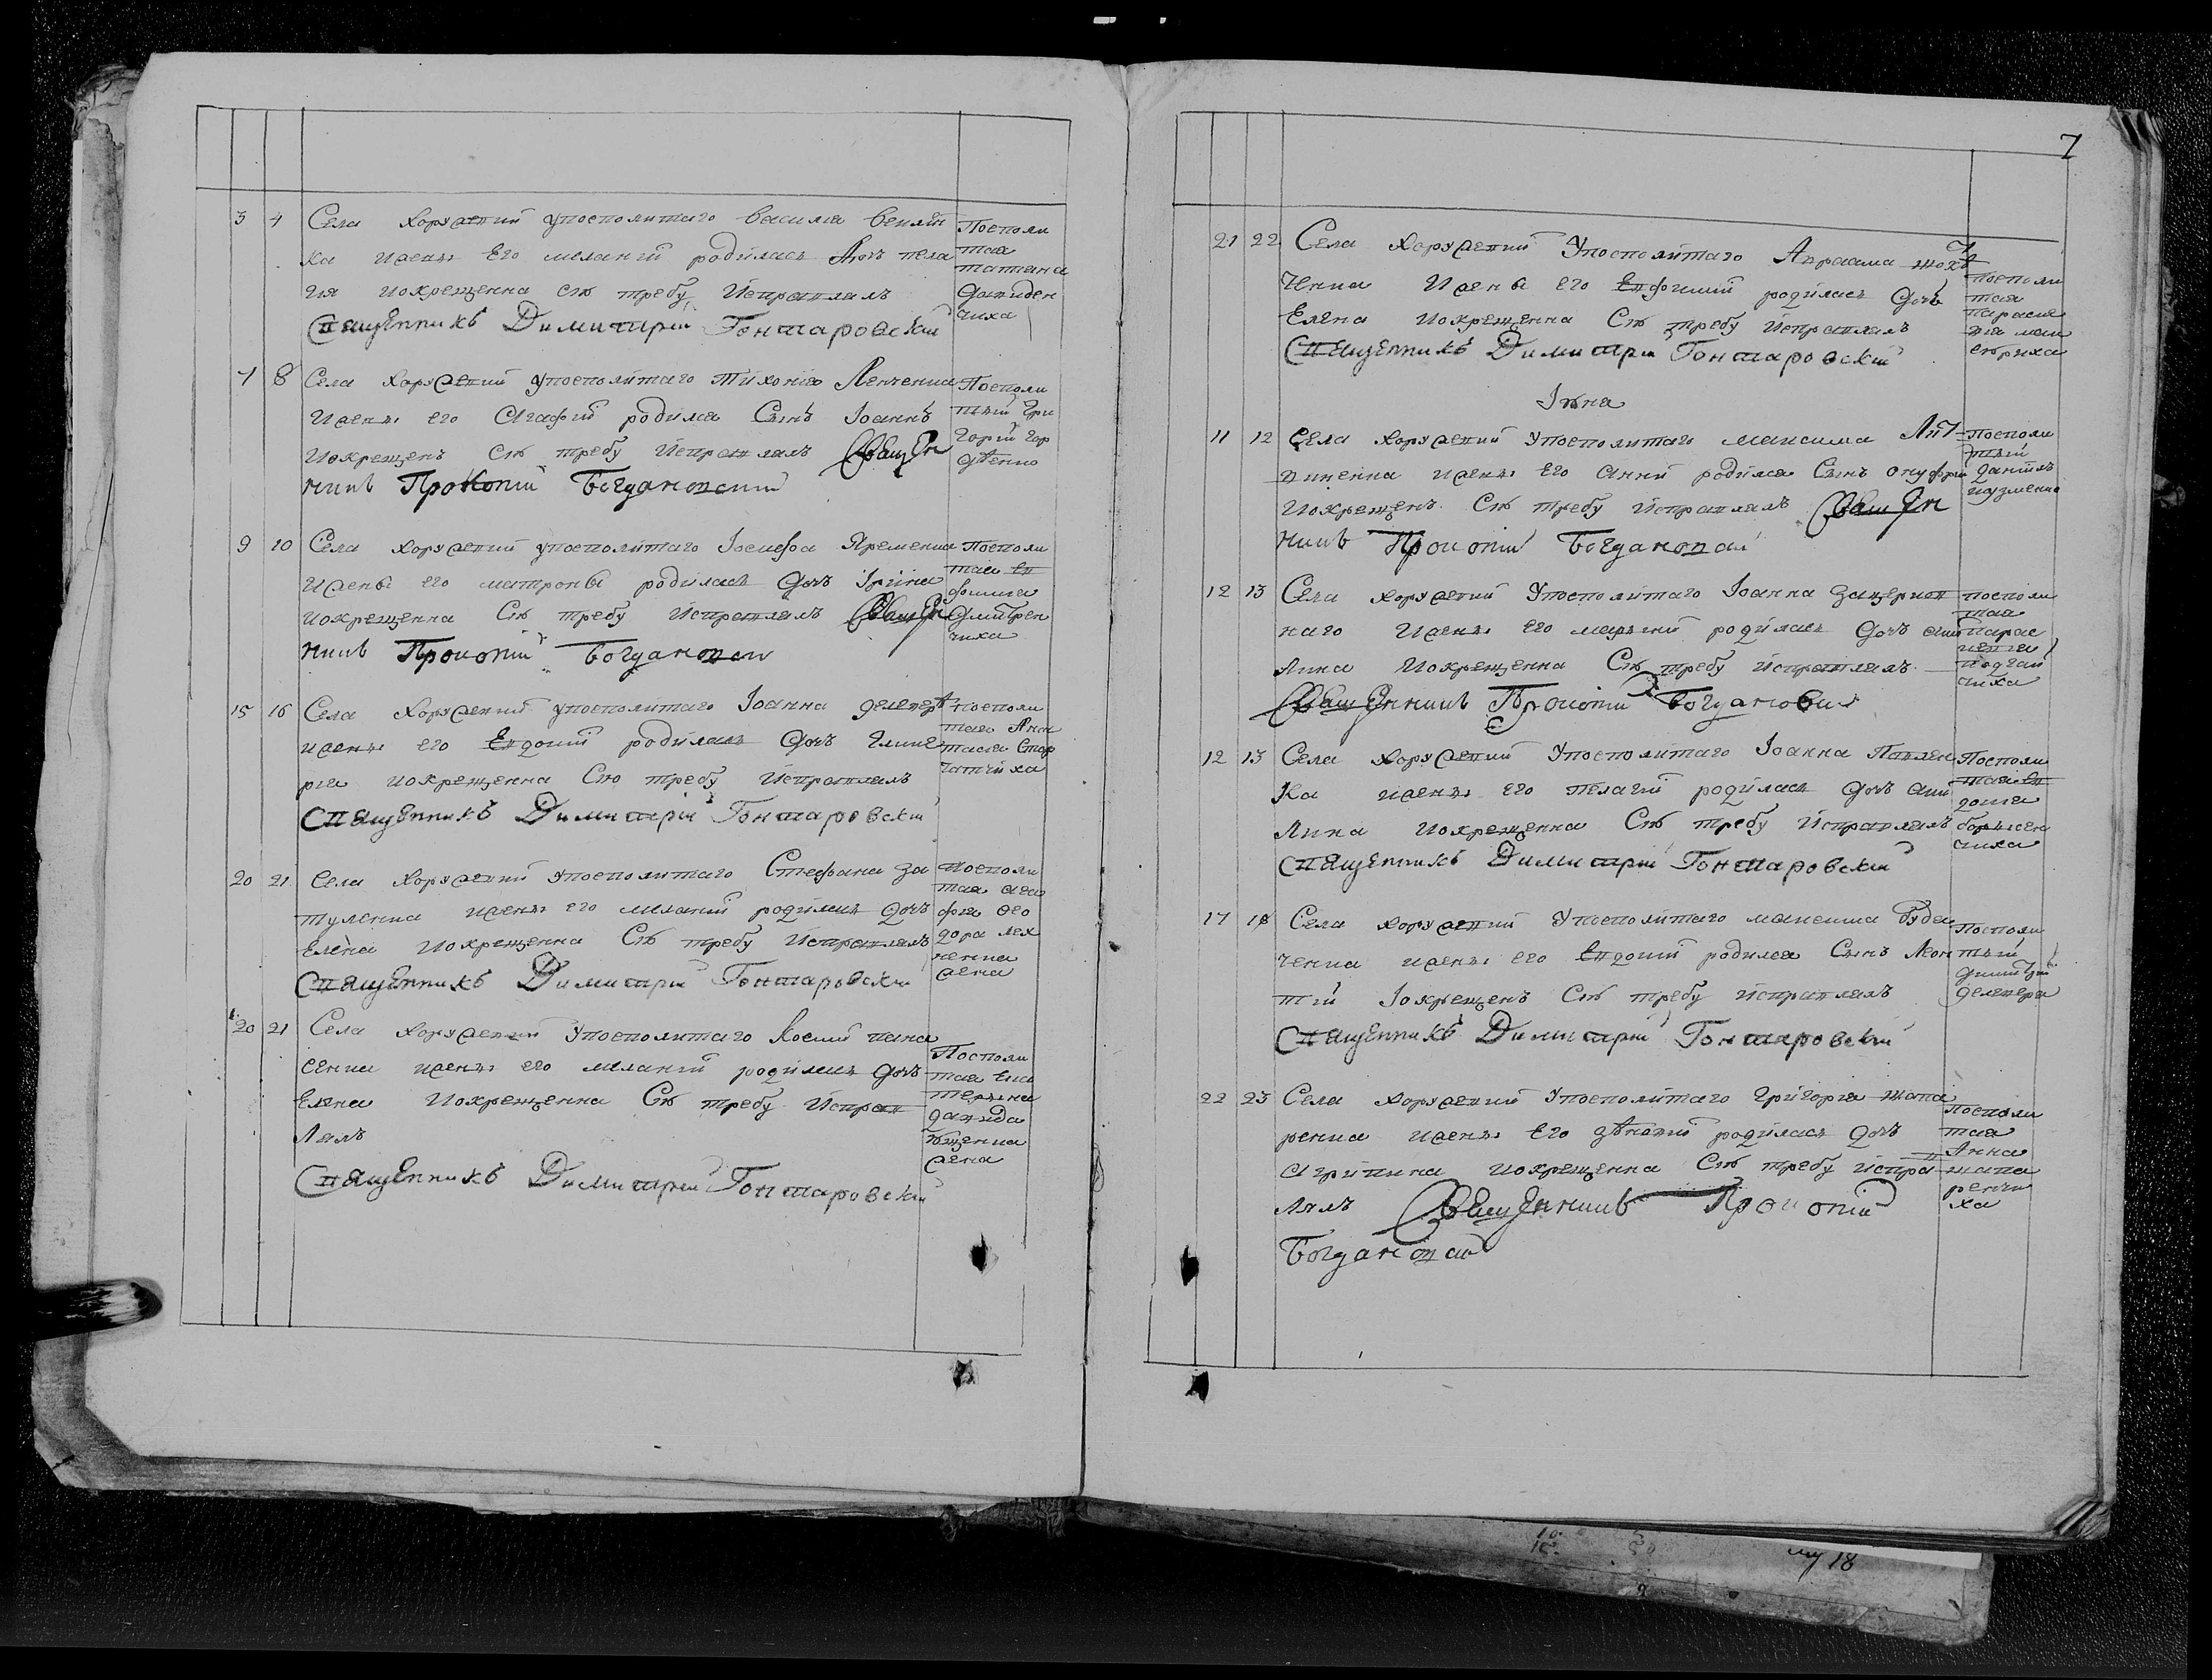 3 4 Села Хоружевки упосполитаго Василия Венлин
ка ижены Его мелании родилась дочь пела
гия иокрещенна сію требу исправлялъ
Священникъ Димитрий Гонтаровский
Посполи
тая
татияна
давиден
чиха
7 8 Села Хоружевки упосполитаго тихоніго Левченка
ижены его Агафии родился Сынъ Іоаннъ
иокрещенъ Сію требу исправлялъ Священ
никъ Прокопий Богдановский
Посполи
тый Гри
горий гор
дѣенко
9 10 Села Хоружевки упосполитаго Іосифа Яременка
ижены его матроны родилась дочь Ірина
иокрещенна Сію требу исправлялъ Священ
никъ Прокопий Богдановски
Посполи
тая Ев
фимия
дмитрен
чиха
15 16 Села Хоружевки упосполитаго Іоанна
ижены его Евдокии родилась дочь Глике
рия иокрещенна Сію требу исправлялъ
Священникъ Димитрий Гонтаровский
посполи
тая Ана
тасия
20 21 Села Хоружевки упосполитаго Стефана за
туленка ижены его мелании родилась дочь
Елена иокрещенна Сію требу исправлялъ
Священникъ Димитрий Гонтаровский
Посполи
тая ага
фия ѳео
дора лех
ненка
жена
20 21 Села Хоружевки упосполитаго Косми пана
сенка ижены его мелании родилась дочь
Елена иокрещенна Сію требу исправ
лялъ
Священникъ Димитрий Гонтаровский
Посполи
тая Ека
терина
давида
жена
7
21 22 Села Хоружевки упосполитаго Авраама
ченка ижены его Евфимии родилась дочь
Елена иокрещенна Сію требу исправлялъ
Священникъ Димитрий Гонтаровский
посполи
тая
параске
вия
Іюна
11 12 Села Хоружевки упосполитаго максима Лит
виненка ижены его Анны родился Сынъ онуфрий
иокрещенъ Сію требу исправлялъ Священ
никъ Прокопий Богдановский
посполи
тый
даниилъ
кузменко
12 13 Села Хоружевки упосполитаго Іоанна
наго ижены его марьи родилась дочь аки
лина иокрещенна Сію требу исправлялъ
Священникъ Прокопий Богдановски
посполи
тая
парас
кевия
подгай
чиха
12 13 Села Хоружевки упосполитаго Іоанна Павлен
ка ижены его пелагии родилась дочь аки
лина иокрещенна Сію требу исправлялъ
Священникъ Димитрий Гонтаровский
Посполи
тая Ев
докия
борисен
чиха
17 18 Села Хоружевки упосполитаго максима Буда
ченка ижены его Евдокии родился Сынъ Леон
тий Іокрещенъ Сію требу исправлялъ
Священникъ Димитрий Гонтаровский
Посполи
тый
димитрий
22 23 Села Хоружевки упосполитаго Григория шапа
ренка ижены Его родилась дочь
Агрипина иокрещенна Сію требу испра
влялъ Священникъ Прокопий
Богдановски
посполи
тая
Анна
шапа
ренчи
ха